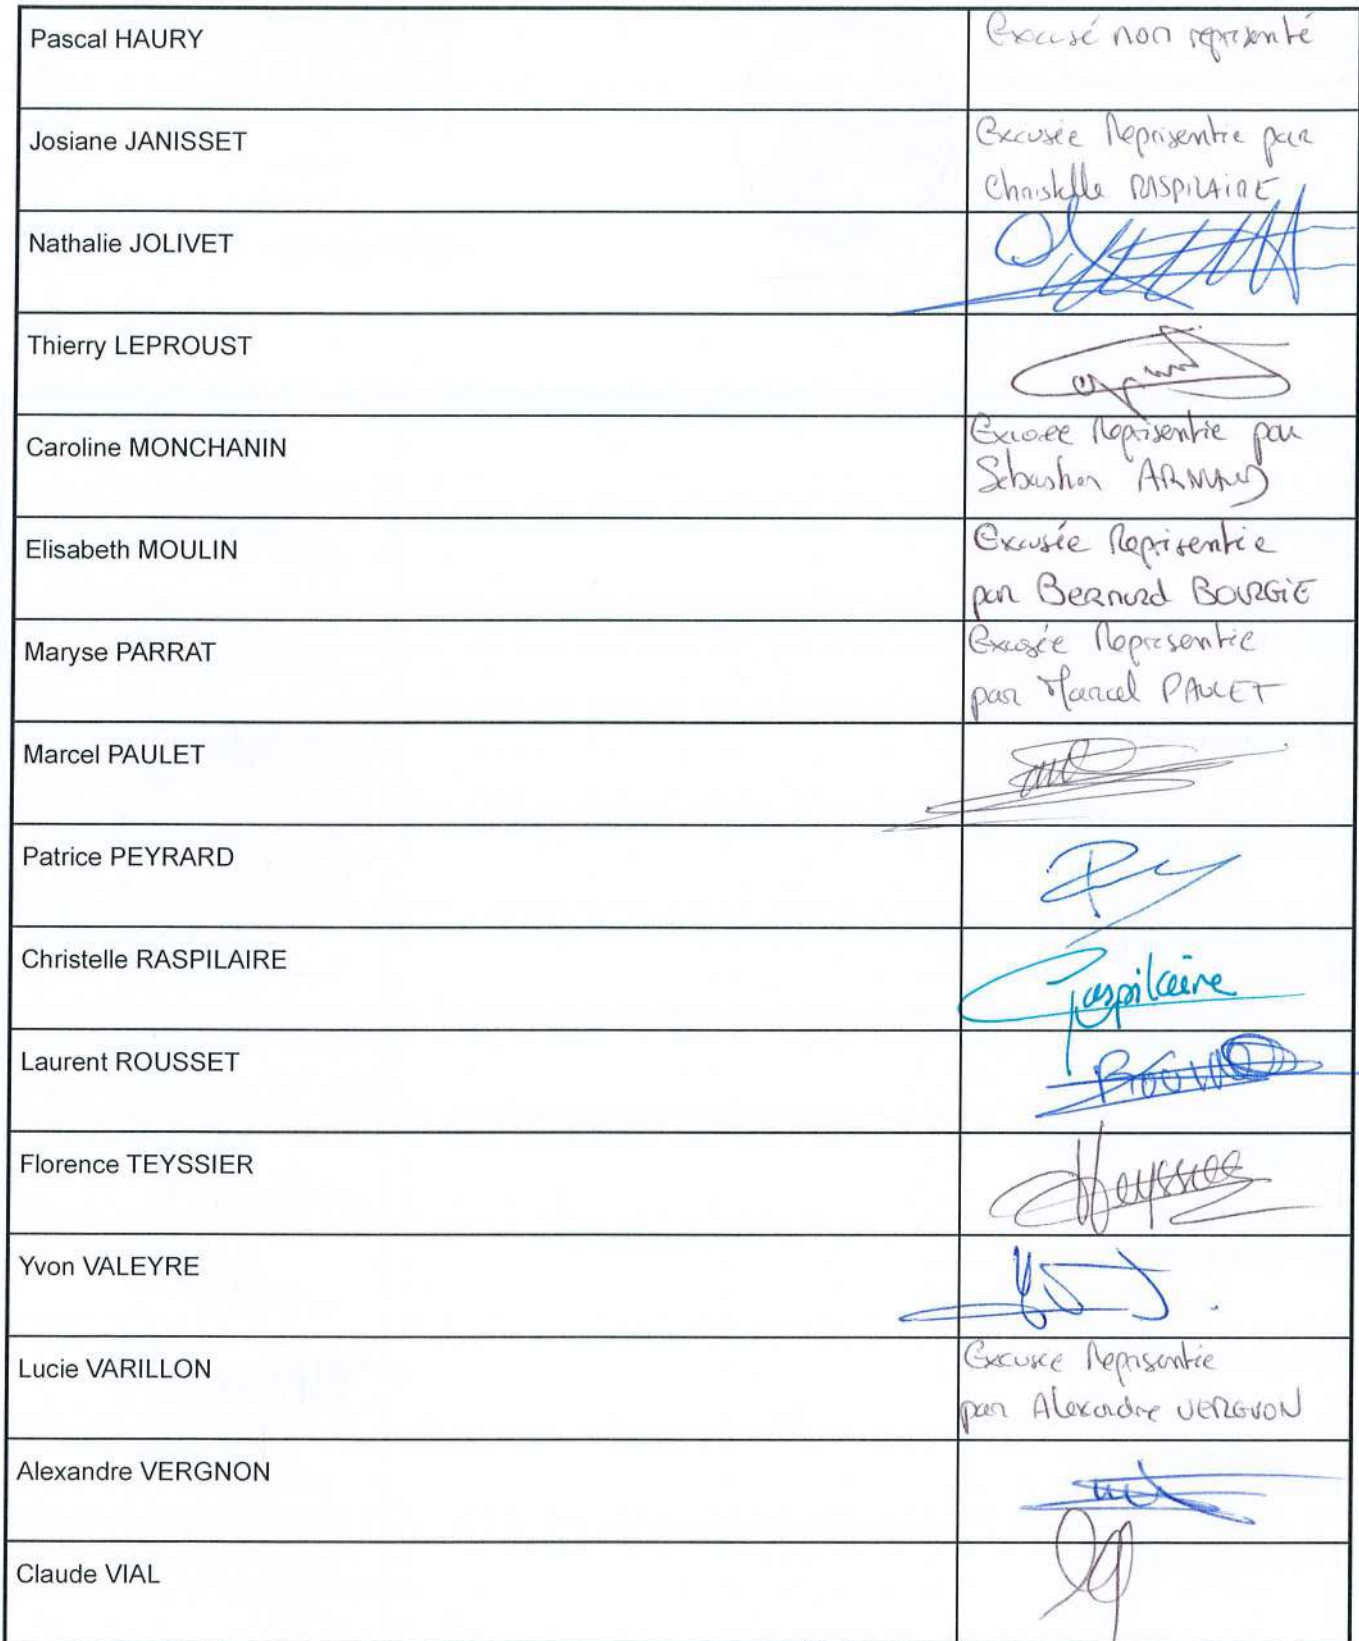 Pascal HAURY
Excusé non représenté
Josiane JANISSET
Excusée Représentée par
Christelle RASPILAIRE
Nathalie JOLIVET
Thierry LEPROUST
Caroline MONCHANIN
Excusée Représentée par
Sébastien ARNAUD
Elisabeth MOULIN
Excusée Représentée
par Bernard BOURGIE
Maryse PARRAT
Excusée Représentée
par Marcel PAULET
Marcel PAULET
Patrice PEYRARD
Christelle RASPILAIRE
Raspilaire
Laurent ROUSSET
Florence TEYSSIER
Yvon VALEYRE
Lucie VARILLON
Excusée Représentée
par Alexandre VERGNON
Alexandre VERGNON
Claude VIAL